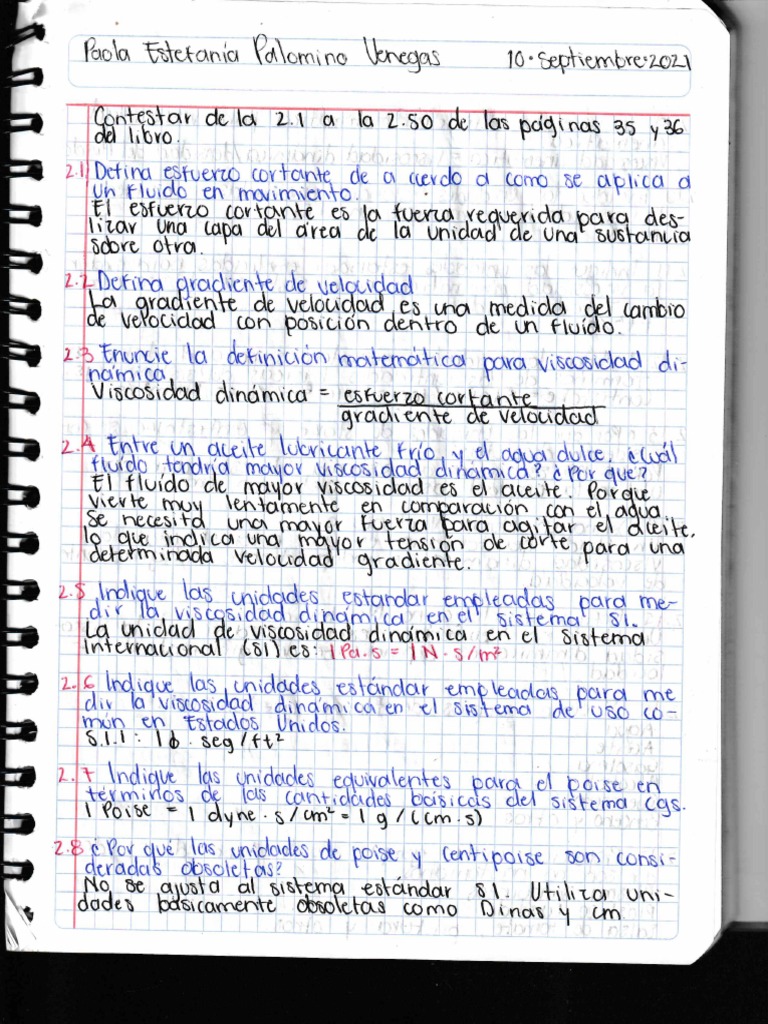 Paola Estefanía Palomino Venegas 10·septiembre·2021
Contestar de la 2.1 a la 2.50 de las páginas 35 y 36
del libro.
2.1 Defina esfuerzo cortante de a cierdo a como se aplica a
un fluido en movimiento.
El esfuerzo cortante es la fuerza requerida para des-
lizar una capa del área de la unidad de una sustancia
sobre otra.
2.2 Defina gradiente de velocidad
La gradiente de velocidad es una medida del cambio
de velocidad con posición dentro de un fluido.
2.3 Enuncie la definición matemática para viscosidad di-
námica
Viscosidad dinámica = esfuerzo cortante
gradiente de velocidad
2.4 Entre un aceite lubricante frío, y el agua dulce. ¿Cuál
fluido tendría mayor viscosidad dinámica? ¿Por que?
El fluido de mayor viscosidad es el aceite. Porque
vierte muy lentamente en comparación con el agua.
Se necesita una mayor fuerza para agitar el aceite,
lo que indica una mayor tensión de corte para una
determinada velocidad gradiente.
2.5 Indique las unidades estandar empleadas para me-
dir la viscosidad dinámica en el sistema SI.
La unidad de viscosidad dinámica en el Sistema
Internacional (SI) es: 1 Pa·s = 1 N·s/m²
2.6 Indique las unidades estándar empleadas para me
dir la viscosidad dinámica en el sistema de uso co-
mún en Estados Unidos.
S.I.I: 1b·seg/ft²
2.7 Indique las unidades equivalentes para el poise en
términos de las cantidades básicas del sistema cgs.
1 Poise = 1 dyne·s/cm² = 1 g/(cm·s)
2.8 ¿Por qué las unidades de poise y centipoise son consi-
deradas obsoletas?
No se ajusta al sistema estándar SI. Utiliza uni-
dades básicamente obsoletas como Dinas y cm